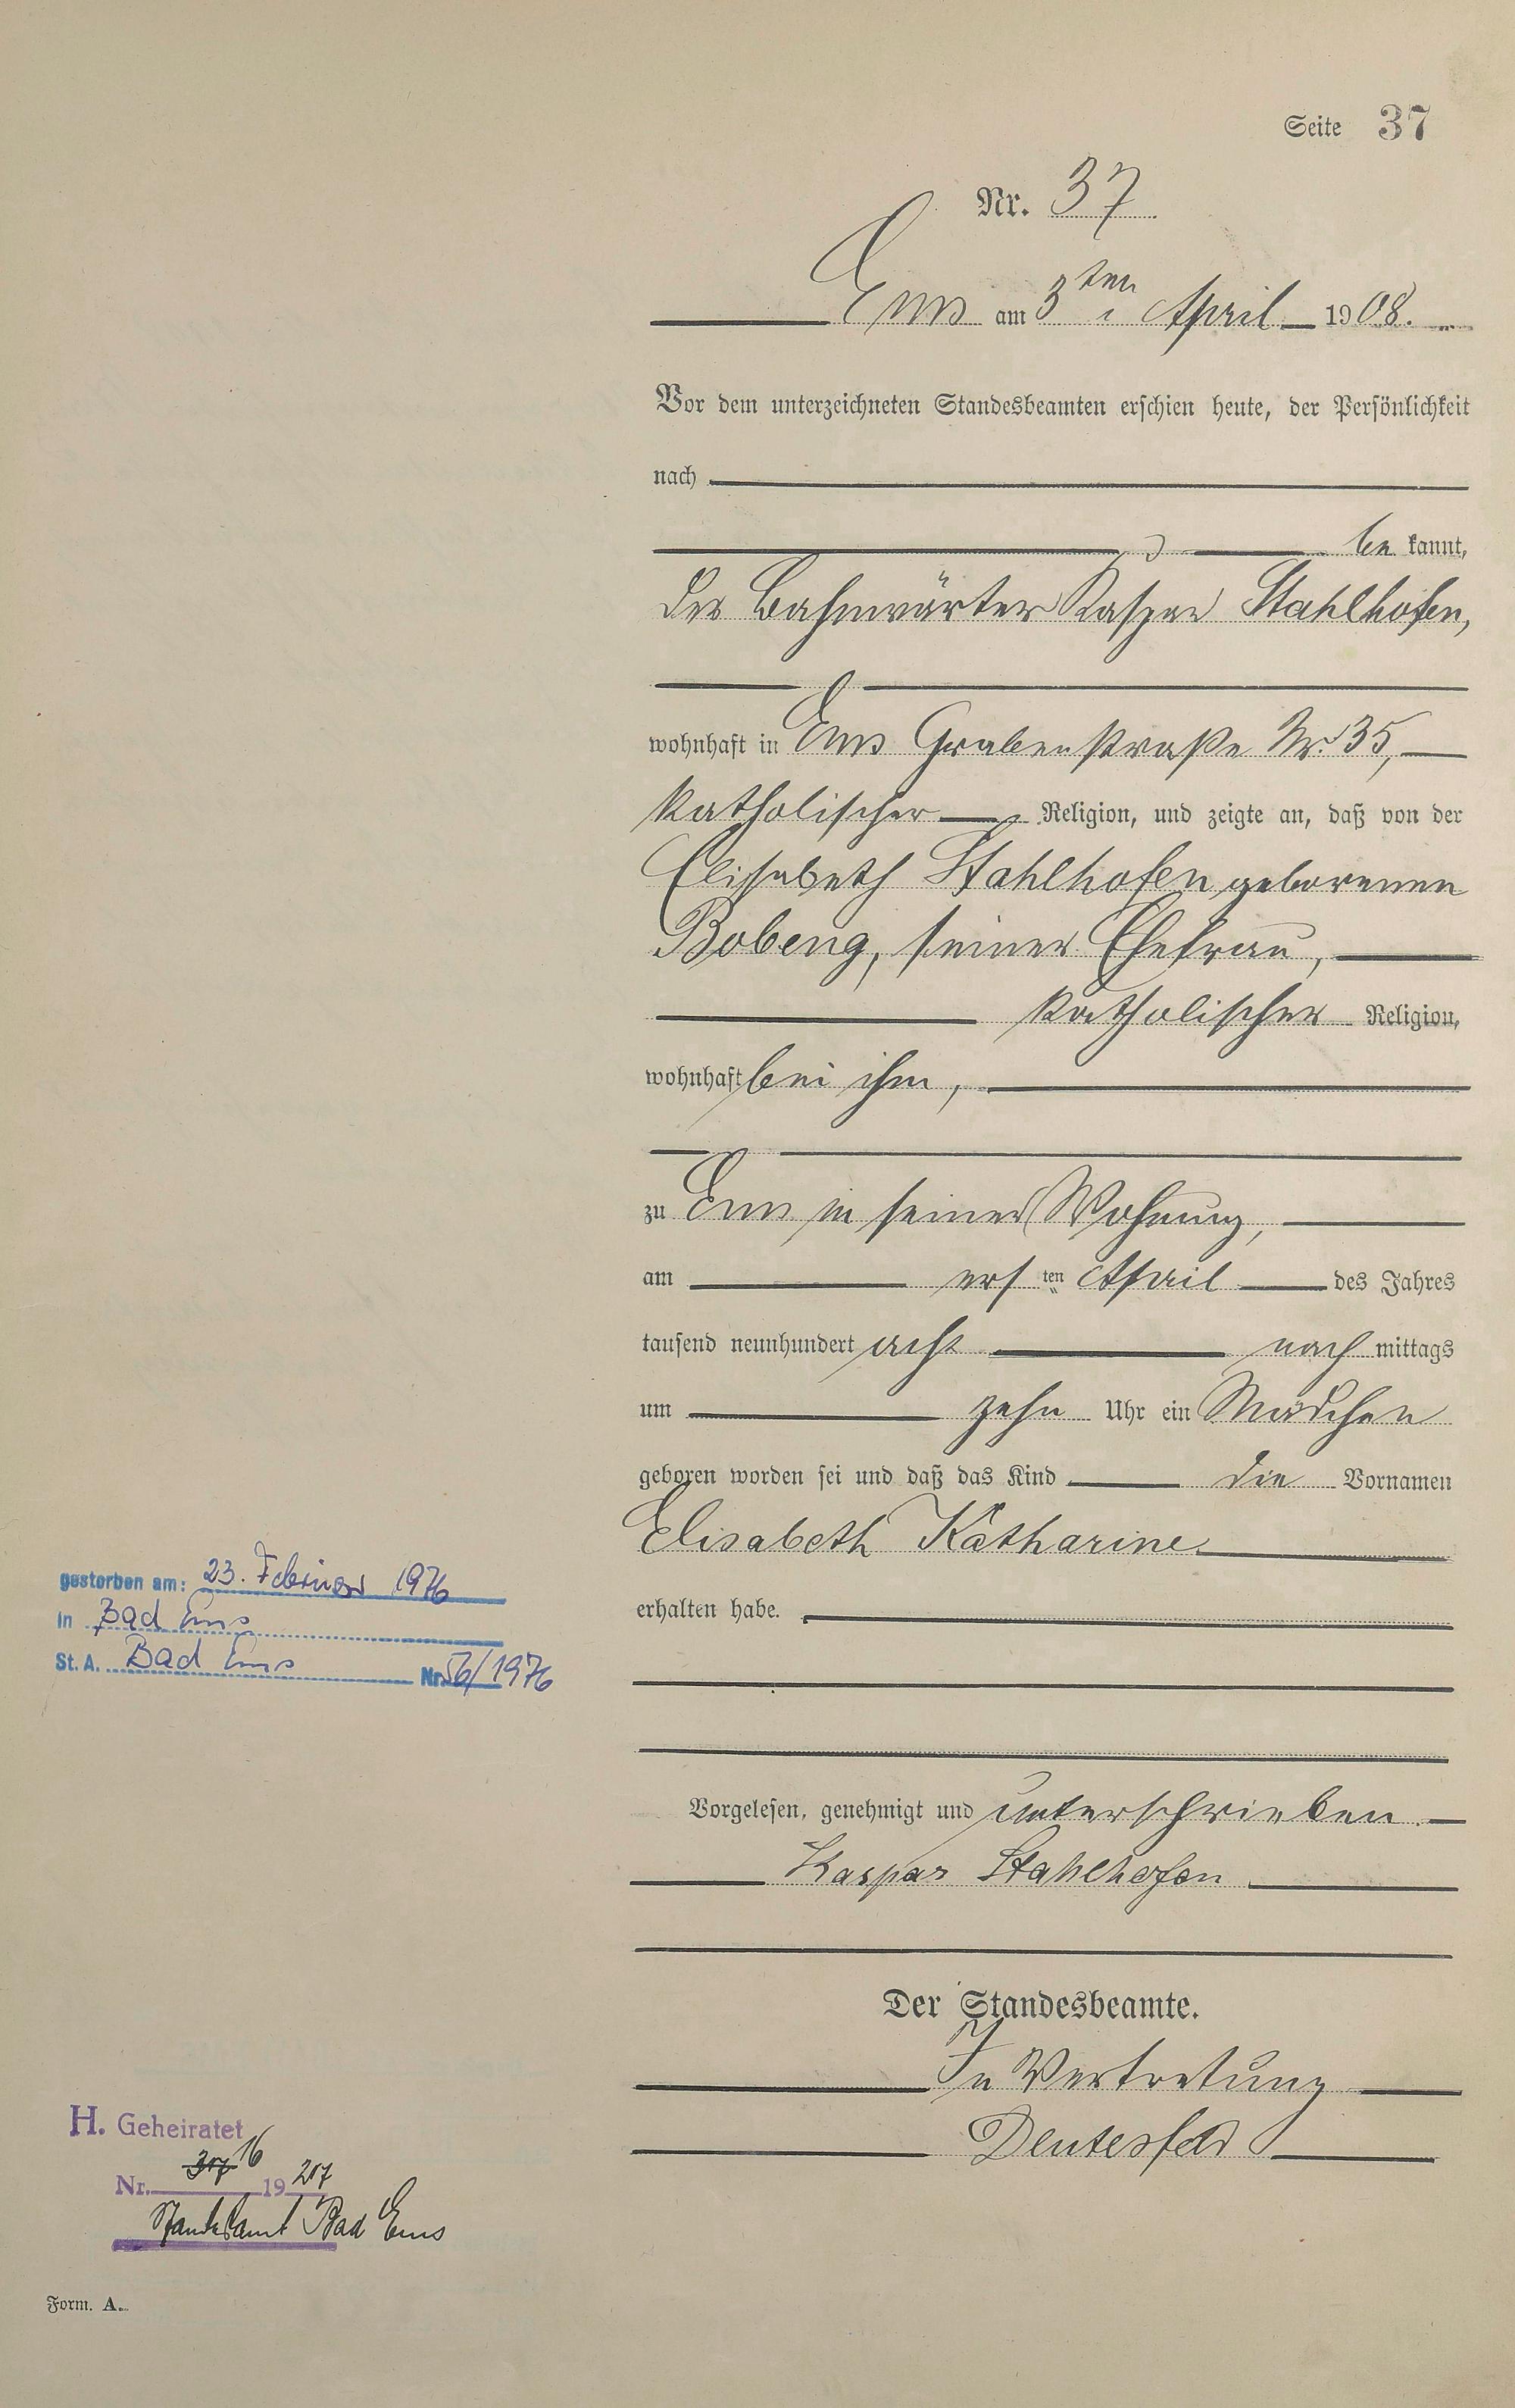 Seite 37
Nr. 37
Ems am 3ten April 1908.
Vor dem unterzeichneten Standesbeamten erschien heute, der Persönlichkeit
nach
be kannt,
der Bahnwärter Kaspar Stahlhofen,
wohnhaft in Ems Grabenstraße Nr. 35,
katholischer Religion, und zeigte an, daß von der
Elisabeth Stahlhofen geborenen
Bobeng, seiner Ehefrau,
katholischer Religion,
wohnhaft bei ihm,
zu Ems in seiner Wohnung,
am ersten April des Jahres
tausend neunhundert acht nach mittags
um zehn Uhr ein Mädchen
geboren worden sei und daß das Kind die Vornamen
Elisabeth Katharine
erhalten habe.
Vorgelesen, genehmigt und unterschrieben.
Kaspar Stahlhofen
Der Standesbeamte.
In Vertretung
gestorben am: 23. Februar 1976
in Bad Ems
St. A. Bad Ems Nr. 56/1976
H. Geheiratet
Nr. 16 19
Standesamt Bad Ems
Form. A.